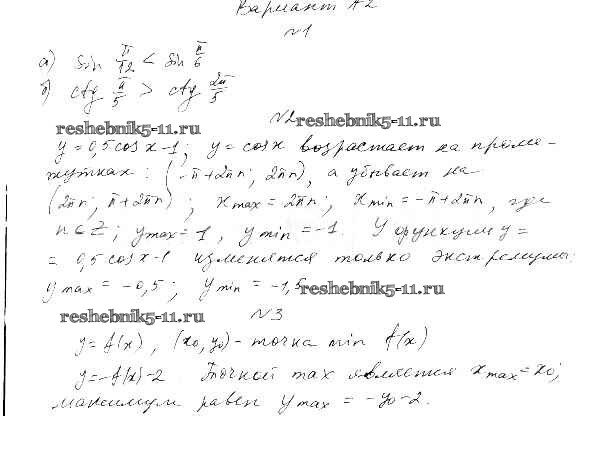 Вариант А2
№1
а) sin π/12 < sin π/6
б) ctg π/5 > ctg 2π/5
№2
reshebnik5-11.ru
reshebnik5-11.ru
y = 0,5cos x - 1; y = cos x возрастает на проме-
жутках: (-π+2πn; 2πn), а убывает на
(2πn; π+2πn); xmax = 2πn; xmin = -π+2πn, где
n ∈ Z; ymax = 1, ymin = -1. У функции y =
= 0,5cos x - 1 изменятся только экстремумы:
ymax = -0,5; ymin = -1,5
reshebnik5-11.ru
reshebnik5-11.ru
№3
y = f(x), (x0, y0) - точка min f(x)
y = -f(x) - 2. Точкой max является xmax = x0;
максимум равен ymax = -y0 - 2.